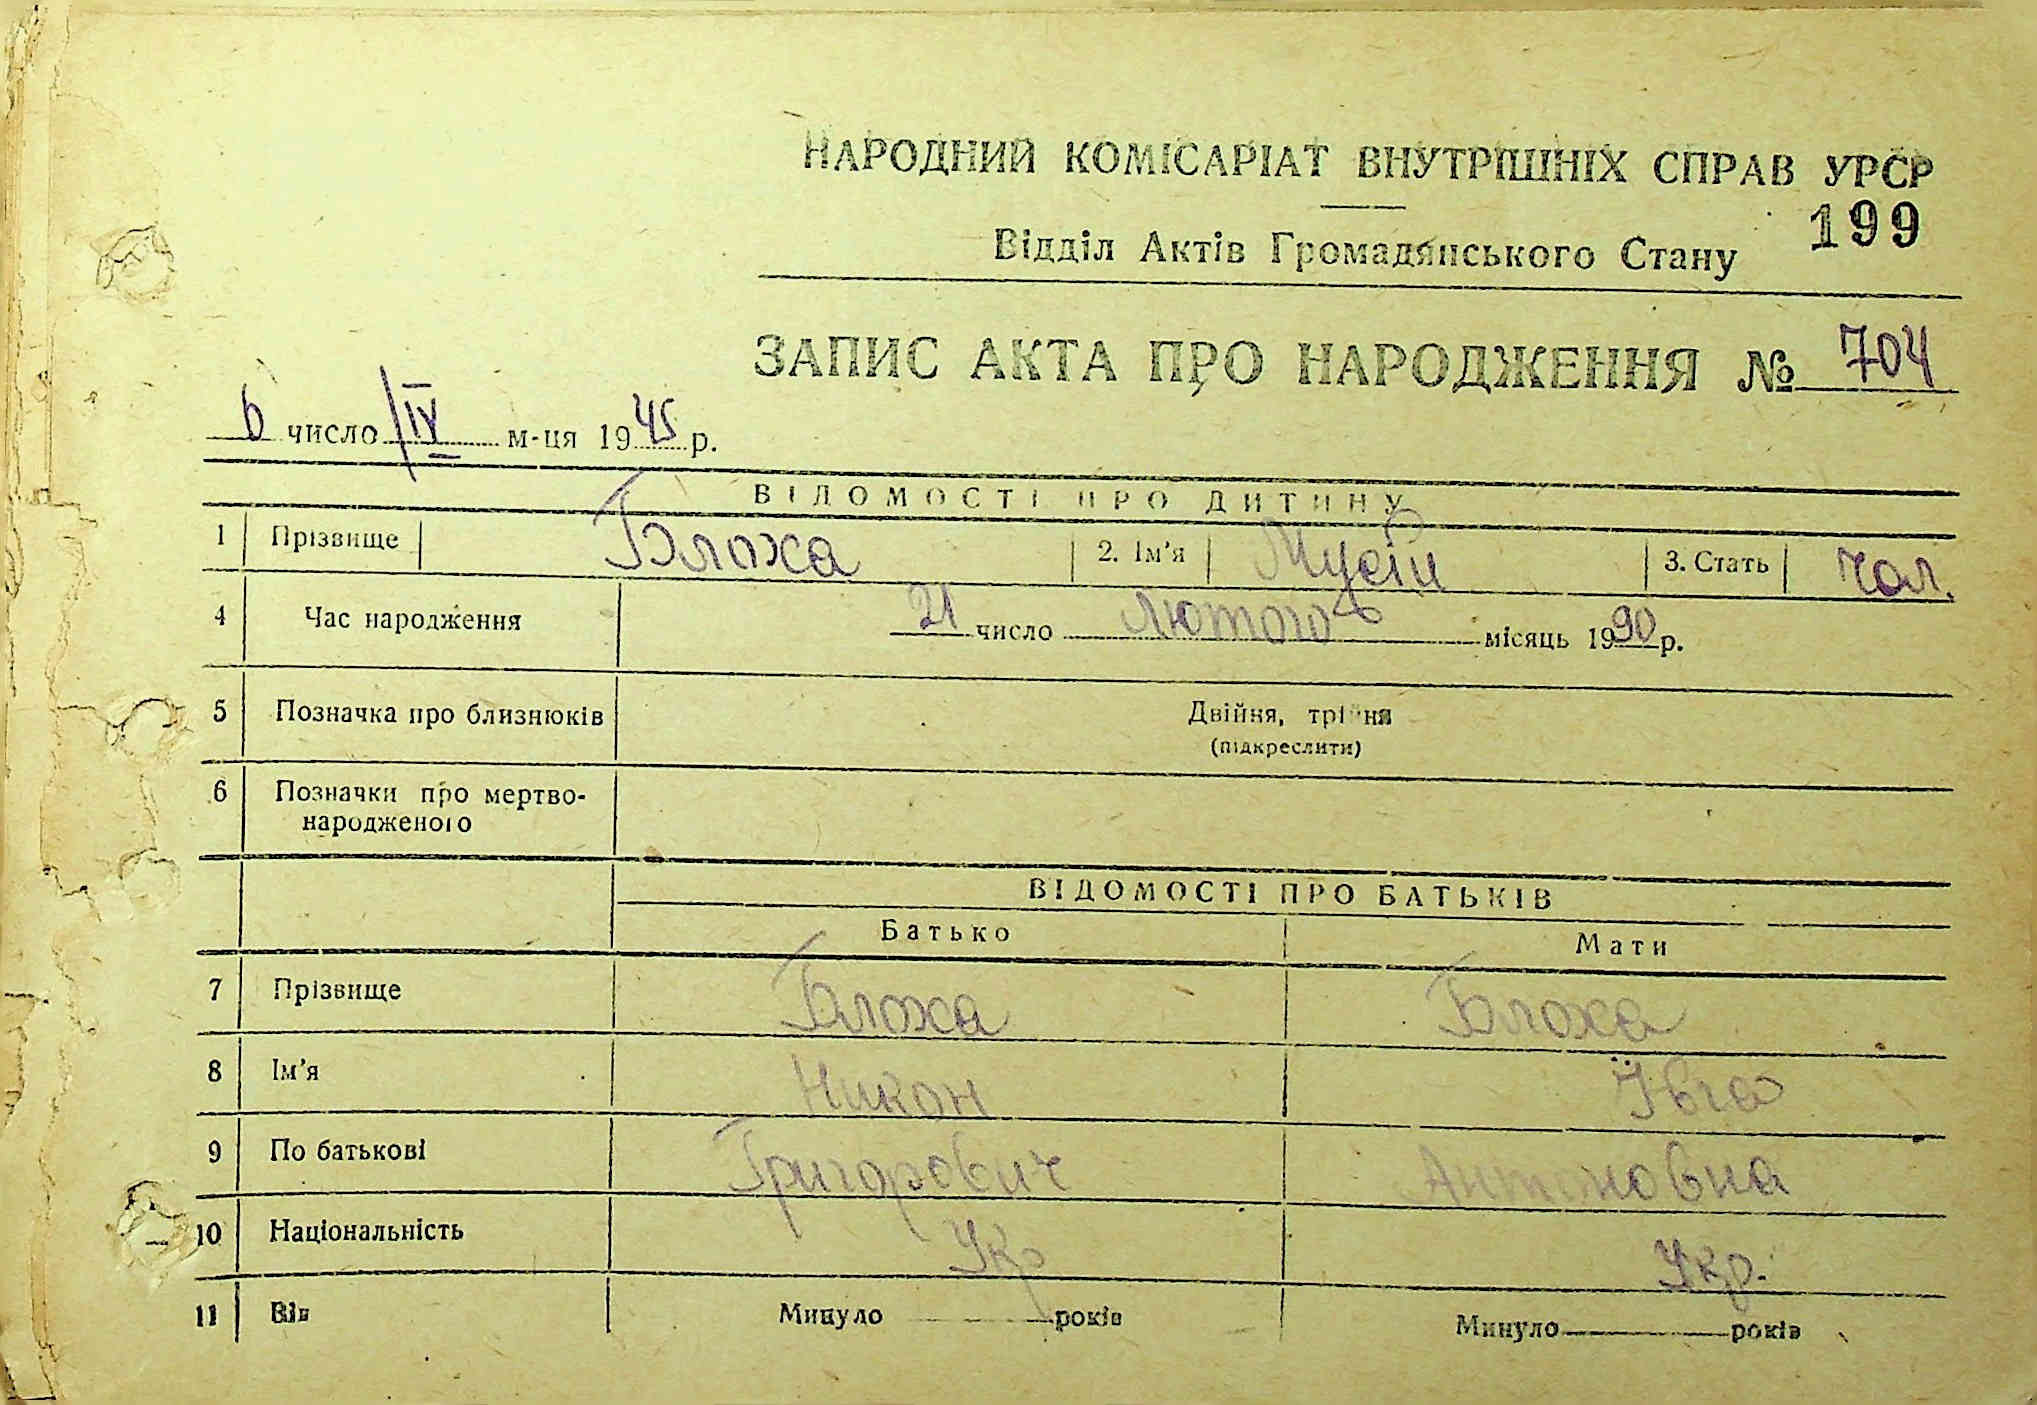 НАРОДНИЙ КОМІСАРІАТ ВНУТРІШНІХ СПРАВ УРСР
199
Відділ Актів Громадянського Стану
ЗАПИС АКТА ПРО НАРОДЖЕННЯ № 704
6 число IV м-ця 1945 р.
ВІДОМОСТІ ПРО ДИТИНУ
1 Прізвище Блоха 2. Ім'я Мусій 3. Стать чол.
4 Час народження 21 число лютого місяць 1990 р.
5 Позначка про близнюків Двійня, трійня
(підкреслити)
6 Позначки про мертво-
народженого
ВІДОМОСТІ ПРО БАТЬКІВ
Батько Мати
7 Прізвище Блоха Блоха
8 Ім'я Никон Івга
9 По батькові Григорович Антоновна
10 Національність Укр Укр.
11 Вік Минуло років Минуло років